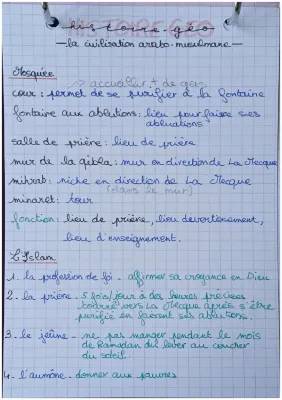 HISTOIRE-GEO
histoire-géo
-la civilisation arabo-musulmane-
Mosquée
→ accueillir + de gens
cour: permet de se purifier à la fontaine
fontaine aux ablutions: lieu pour faire ses
ablutions
salle de prière: lieu de prière
mur de la qibla: mur en direction de La Mecque
mihrab: niche en direction de La Mecque
(dans le mur)
minaret: tour
fonction: lieu de prière, lieu de
lieu d'enseignement.
L'Islam
1. la profession de foi - affirmer sa croyance en Dieu
2. la prière - 5 fois/jour à des heures précises
tourné vers La Mecque après s'être
purifié en faisant ses ablutions.
3. le jeûne - ne pas manger pendant le mois
de Ramadan du lever au coucher
du soleil
4. l'aumône - donner aux pauvres